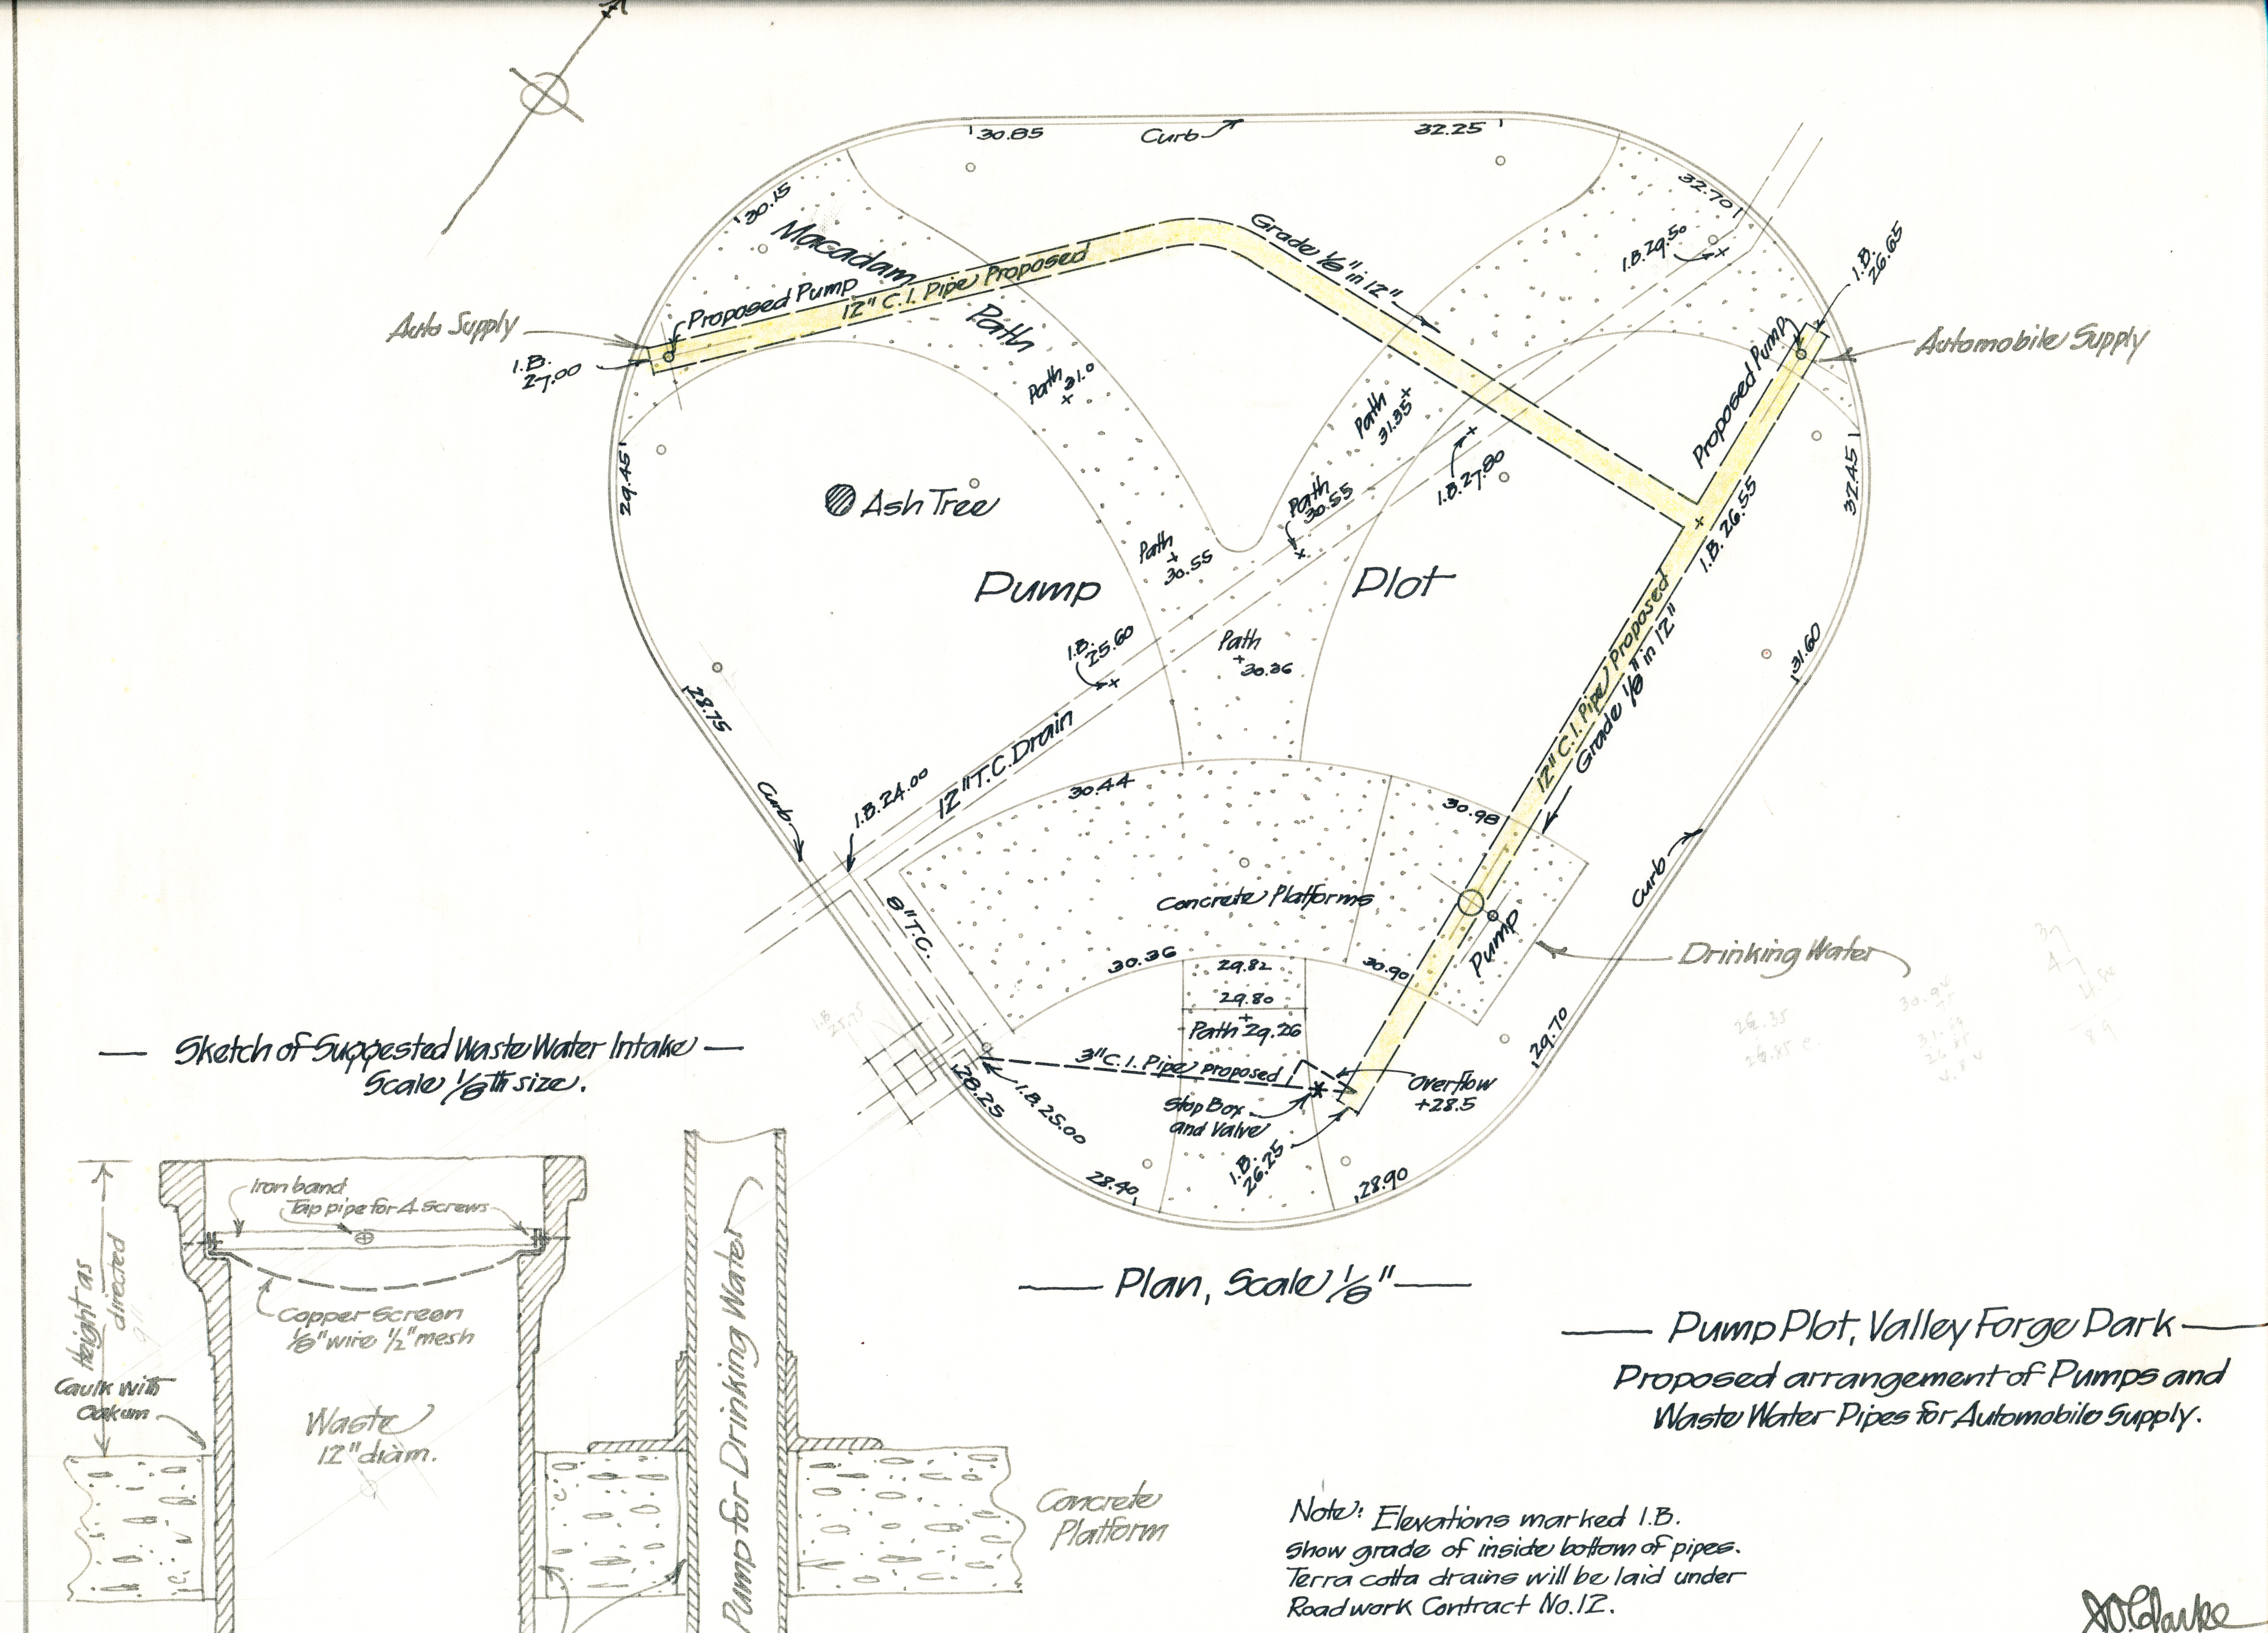 30.85
Curb
32.25
30.15
32.70
Macadam
Path
I.B. 29.50
I.B.
26.65
Grade 1/8" in 12"
12" C.I. Pipe Proposed
Proposed Pump
Auto Supply
I.B.
27.00
Proposed Pump
Automobile Supply
Path
31.0
Path
31.35
29.45
Ash Tree
Path
30.55
I.B. 27.80
32.45
I.B. 26.55
Path
30.55
Pump Plot
I.B.
25.60
Path
30.36
12" C.I. Pipe Proposed
Grade 1/8" in 12"
31.60
28.75
12" T.C. Drain
Curb
I.B. 24.00
30.44
30.98
8" T.C.
Concrete Platforms
Curb
Pump
Drinking Water
30.36
29.82
30.90
29.80
Path 29.26
29.70
3" C.I. Pipe proposed
Overflow
+28.5
Stop Box
and Valve
28.25
I.B. 25.00
I.B.
26.25
28.40
28.90
Plan, Scale 1/8"
Sketch of Suggested Waste Water Intake
Scale 1/8th size.
Iron band
Tap pipe for 4 screws
Height as
directed
9"
Copper Screen
1/8" wire 1/2" mesh
Caulk with
Oakum
Waste
12" diam.
Pump for Drinking Water
Concrete
Platform
Pump Plot, Valley Forge Park
Proposed arrangement of Pumps and
Waste Water Pipes for Automobile Supply.
Note: Elevations marked I.B.
show grade of inside bottom of pipes.
Terra cotta drains will be laid under
Roadwork Contract No. 12.